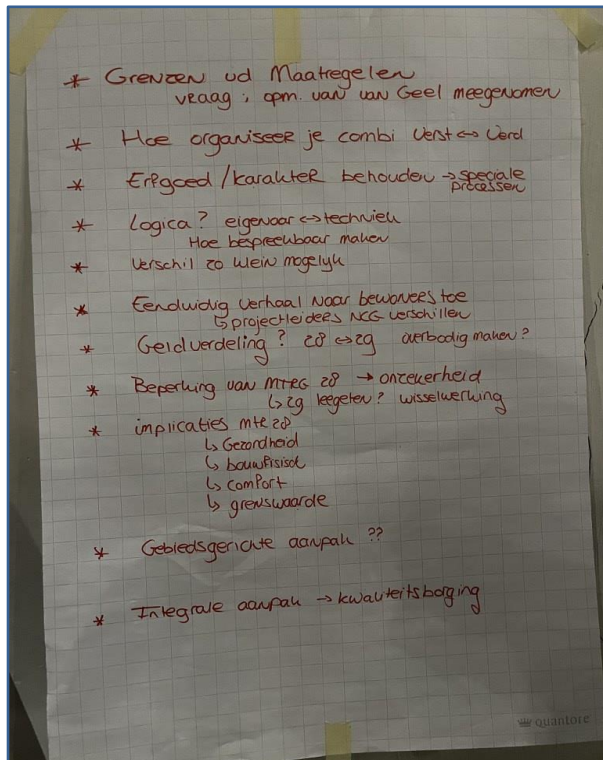 * Grenzen vd Maatregelen
vraag ; opm. van van Geel meegenomen
* Hoe organiseer je combi Verst <-> Verd
* Erfgoed / karakter behouden -> speciale
processen
* Logica ? eigenaar <-> techniek
Hoe bespreekbaar maken
* Verschil zo klein mogelijk
* Eenduidig verhaal naar bewoners toe
↳ projectleiders NCG verschillen
* Geldverdeling ? 28 <-> 29 overbodig maken ?
* Beperking van MTRG 28 -> onzekerheid
↳ 29 leegeten ? wisselwerking
* implicaties mtr 28
↳ Gezondheid
↳ bouwfisisch
↳ comfort
↳ grenswaarde
* Gebiedsgerichte aanpak ??
* Integrale aanpak -> kwaliteitsborging
quantore